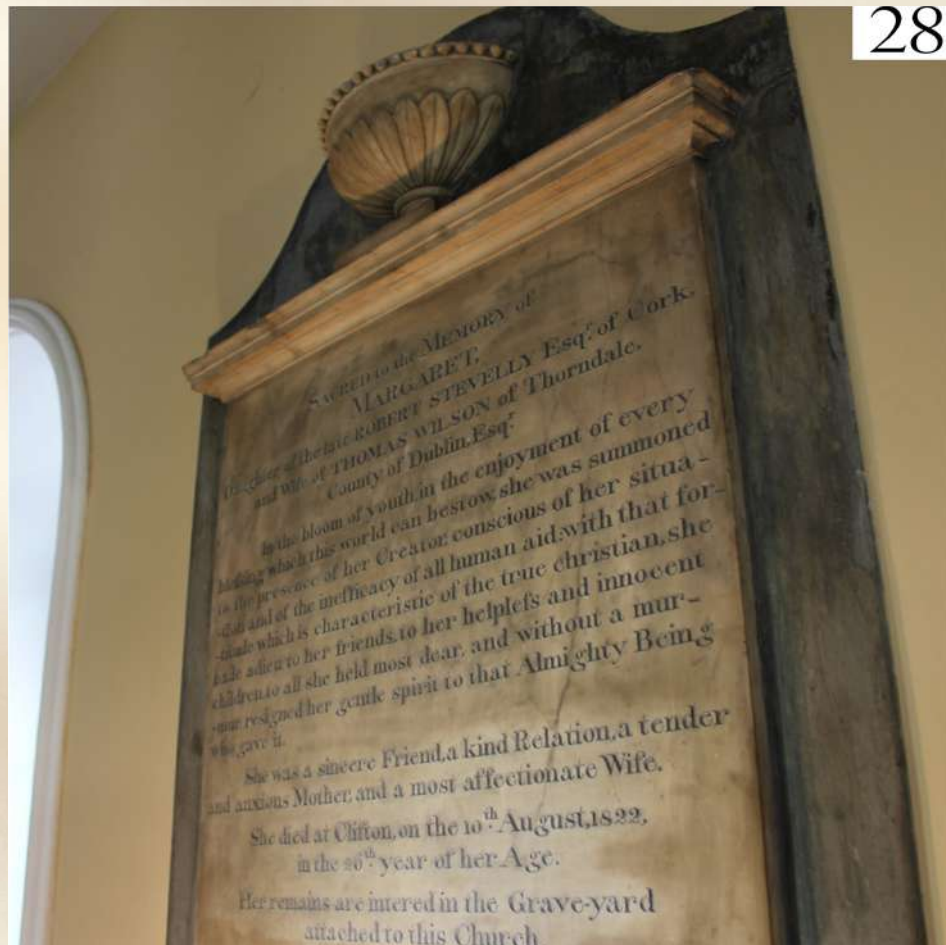 28
SACRED to the MEMORY of
MARGARET,
Daughter of the late ROBERT STEVELLY Esqr. of Cork,
and Wife of THOMAS WILSON of Thorndale,
County of Dublin, Esqr.
In the bloom of youth, in the enjoyment of every
blessing which this world can bestow, she was summoned
to the presence of her Creator, conscious of her situa-
-tion and of the inefficacy of all human aid: with that for-
-titude which is characteristic of the true christian, she
bade adieu to her friends, to her helpless and innocent
children, to all she held most dear, and without a mur-
-mur, resigned her gentle spirit to that Almighty Being
who gave it.
She was a sincere Friend, a kind Relation, a tender
and anxious Mother, and a most affectionate Wife.
She died at Clifton, on the 10th August, 1822,
in the 26th year of her Age.
Her remains are intered in the Grave-yard
attached to this Church